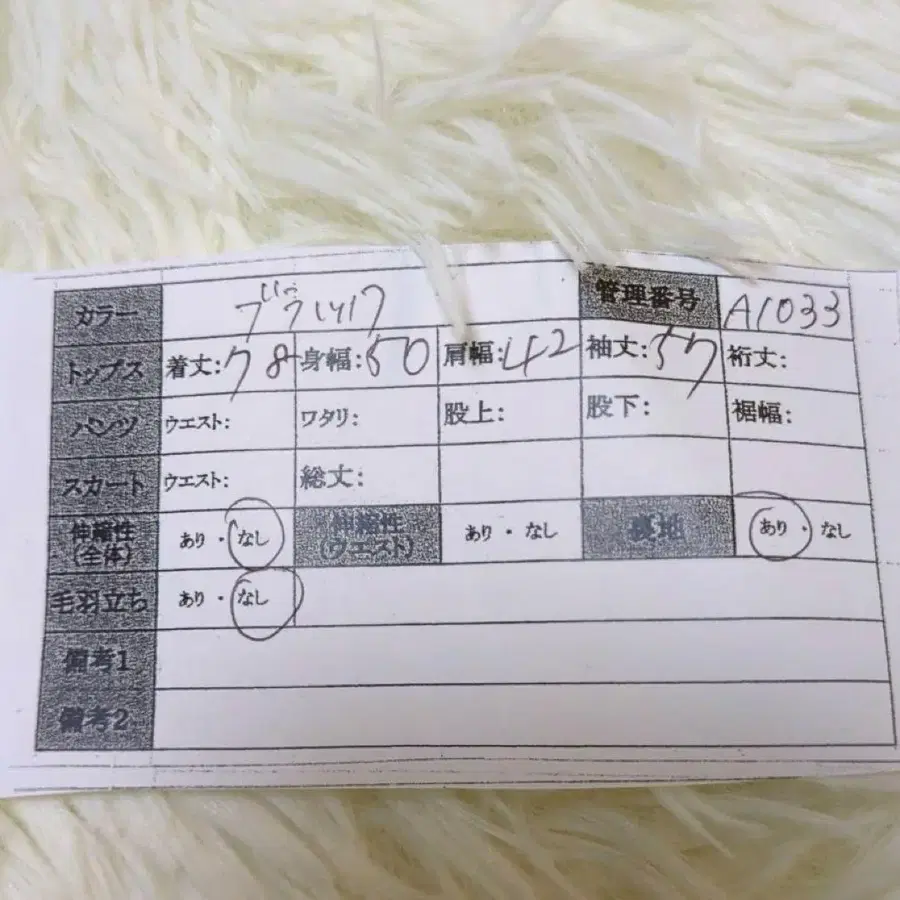 カラー ブラック 管理番号 A1033
トップス 着丈:78 身幅:50 肩幅:42 袖丈:57 裄丈:
パンツ ウエスト: ワタリ: 股上: 股下: 裾幅:
スカート ウエスト: 総丈:
伸縮性(全体) あり・なし 伸縮性(ウエスト) あり・なし 裏地 あり・なし
毛羽立ち あり・なし
備考1
備考2